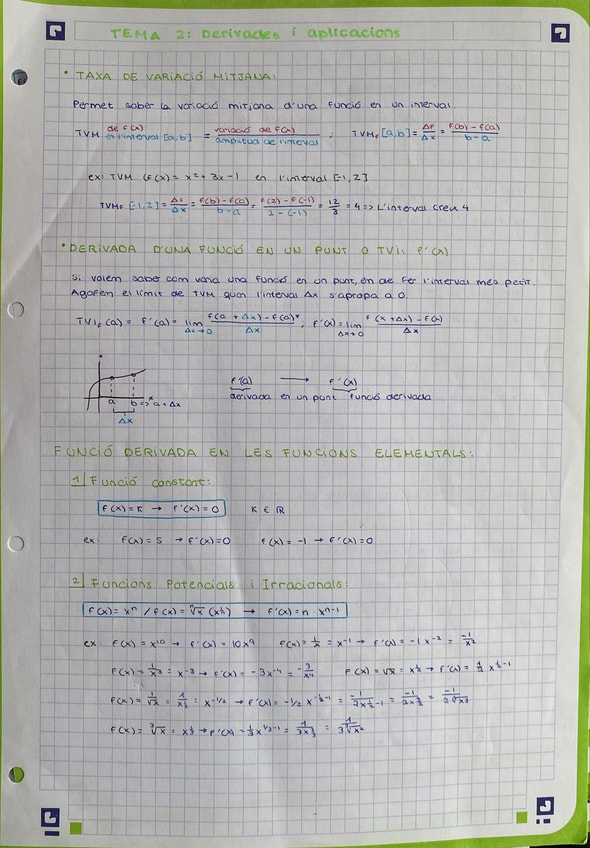 TEMA 2: Derivades i aplicacions
• TAXA DE VARIACIÓ MITJANA:
Permet saber la variació mitjana d'una funció en un interval
TVM de f(x) en l'interval [a,b] = variació de f(x) / amplitud de l'interval ; TVMf [a,b] = Δf/Δx = f(b)-f(a) / b-a
ex: TVM (f(x) = x² + 3x - 1 en l'interval [-1,2]
TVMf [-1,2] = Δf/Δx = f(b)-f(a) / b-a = f(2)-f(-1) / 2-(-1) = 12/3 = 4 => L'interval creix 4
• DERIVADA D'UNA FUNCIÓ EN UN PUNT O TVI: f'(x)
Si volem saber com varia una funció en un punt, en de fer l'interval més petit.
Agafem el límit de TVM quan l'interval Δx s'apropa a 0.
TVIf (a) = f'(a) = lim Δx→0 f(a + Δx) - f(a) / Δx ; f'(x) = lim Δx→0 f(x + Δx) - f(x) / Δx
f'(a) → f'(x)
derivada en un punt funció derivada
a b => a + Δx
Δx
FUNCIÓ DERIVADA EN LES FUNCIONS ELEMENTALS:
1| Funció constant:
f(x) = K → f'(x) = 0 K ∈ ℝ
ex: f(x) = 5 → f'(x) = 0 f(x) = -1 → f'(x) = 0
2| Funcions Potencials i Irracionals:
f(x) = xⁿ / f(x) = ⁿ√x (x^1/n) → f'(x) = n · xⁿ⁻¹
ex: f(x) = x¹⁰ → f'(x) = 10x⁹ f(x) = 1/x = x⁻¹ → f'(x) = -1x⁻² = -1/x²
f(x) = 1/x³ = x⁻³ → f'(x) = -3x⁻⁴ = -3/x⁴ f(x) = √x = x^1/2 → f'(x) = 1/2 x^1/2-1
f(x) = 1/√x = 1/x^1/2 = x^-1/2 → f'(x) = -1/2 x^-1/2-1 = = =
f(x) = ³√x = x^1/3 → f'(x) = 1/3 x^1/3-1 = = 1/3 ³√x²